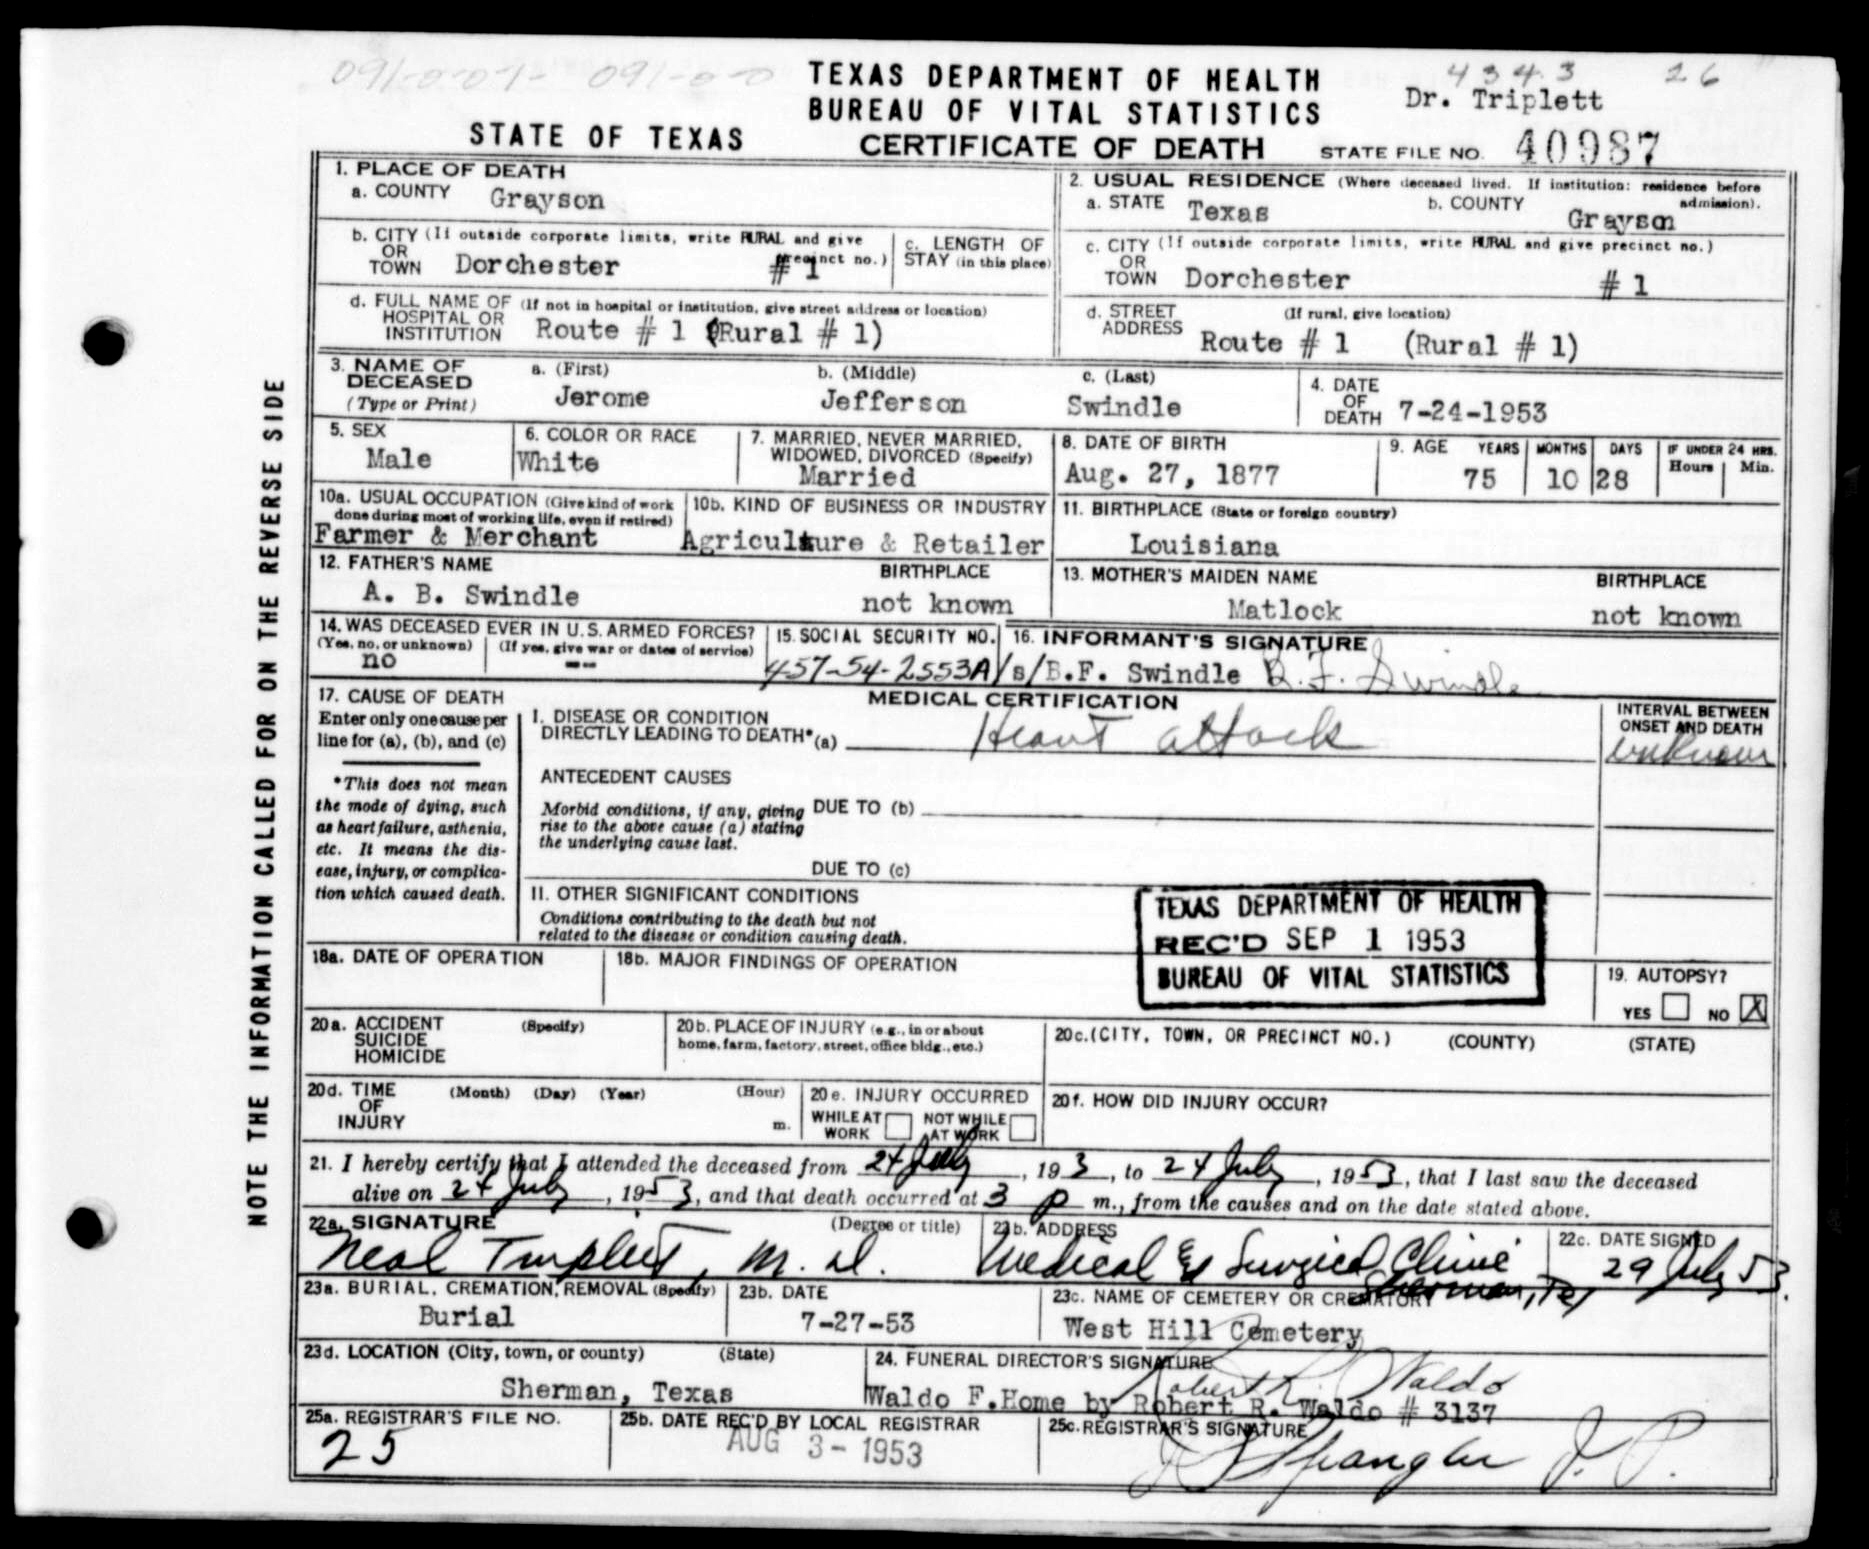 091-0-07- 091-0-0
TEXAS DEPARTMENT OF HEALTH
4343 26
BUREAU OF VITAL STATISTICS
Dr. Triplett
STATE OF TEXAS
CERTIFICATE OF DEATH
STATE FILE NO. 40987
NOTE THE INFORMATION CALLED FOR ON THE REVERSE SIDE
1. PLACE OF DEATH
a. COUNTY Grayson
2. USUAL RESIDENCE (Where deceased lived. If institution: residence before admission).
a. STATE Texas b. COUNTY Grayson
b. CITY (If outside corporate limits, write RURAL and give precinct no.)
OR
TOWN Dorchester # 1
c. LENGTH OF
STAY (in this place)
c. CITY (If outside corporate limits, write RURAL and give precinct no.)
OR
TOWN Dorchester # 1
d. FULL NAME OF (If not in hospital or institution, give street address or location)
HOSPITAL OR
INSTITUTION Route # 1 (Rural # 1)
d. STREET (If rural, give location)
ADDRESS Route # 1 (Rural # 1)
3. NAME OF
DECEASED
(Type or Print)
a. (First) b. (Middle) c. (Last)
Jerome Jefferson Swindle
4. DATE
OF
DEATH 7-24-1953
5. SEX
Male
6. COLOR OR RACE
White
7. MARRIED, NEVER MARRIED,
WIDOWED, DIVORCED (Specify)
Married
8. DATE OF BIRTH
Aug. 27, 1877
9. AGE YEARS MONTHS DAYS IF UNDER 24 HRS.
Hours Min.
75 10 28
10a. USUAL OCCUPATION (Give kind of work
done during most of working life, even if retired)
Farmer & Merchant
10b. KIND OF BUSINESS OR INDUSTRY
Agriculture & Retailer
11. BIRTHPLACE (State or foreign country)
Louisiana
12. FATHER'S NAME BIRTHPLACE
A. B. Swindle not known
13. MOTHER'S MAIDEN NAME BIRTHPLACE
Matlock not known
14. WAS DECEASED EVER IN U.S. ARMED FORCES?
(Yes, no, or unknown) (If yes, give war or dates of service)
no --
15. SOCIAL SECURITY NO.
457-54-2553A
16. INFORMANT'S SIGNATURE
/s/B.F. Swindle B. F. Swindle
17. CAUSE OF DEATH
Enter only one cause per
line for (a), (b), and (c)
*This does not mean
the mode of dying, such
as heart failure, asthenia,
etc. It means the dis-
ease, injury, or complica-
tion which caused death.
MEDICAL CERTIFICATION
I. DISEASE OR CONDITION
DIRECTLY LEADING TO DEATH* (a) Heart attack
INTERVAL BETWEEN
ONSET AND DEATH
unknown
ANTECEDENT CAUSES
Morbid conditions, if any, giving
rise to the above cause (a) stating
the underlying cause last.
DUE TO (b)
DUE TO (c)
II. OTHER SIGNIFICANT CONDITIONS
Conditions contributing to the death but not
related to the disease or condition causing death.
TEXAS DEPARTMENT OF HEALTH
REC'D SEP 1 1953
BUREAU OF VITAL STATISTICS
18a. DATE OF OPERATION
18b. MAJOR FINDINGS OF OPERATION
19. AUTOPSY?
YES NO X
20a. ACCIDENT (Specify)
SUICIDE
HOMICIDE
20b. PLACE OF INJURY (e.g., in or about
home, farm, factory, street, office bldg., etc.)
20c. (CITY, TOWN, OR PRECINCT NO.) (COUNTY) (STATE)
20d. TIME (Month) (Day) (Year) (Hour)
OF
INJURY m.
20e. INJURY OCCURRED
WHILE AT WORK NOT WHILE AT WORK
20f. HOW DID INJURY OCCUR?
21. I hereby certify that I attended the deceased from 24 July, 193, to 24 July, 1953, that I last saw the deceased
alive on 24 July, 1953, and that death occurred at 3 p m., from the causes and on the date stated above.
22a. SIGNATURE (Degree or title)
Neal Triplett, M. D.
22b. ADDRESS
Medical & Surgical Clinic
Sherman, Tex
22c. DATE SIGNED
29 July 53.
23a. BURIAL, CREMATION, REMOVAL (Specify)
Burial
23b. DATE
7-27-53
23c. NAME OF CEMETERY OR CREMATORY
West Hill Cemetery
23d. LOCATION (City, town, or county) (State)
Sherman, Texas
24. FUNERAL DIRECTOR'S SIGNATURE
Robert R. Waldo
Waldo F.Home by Robert R. Waldo # 3137
25a. REGISTRAR'S FILE NO.
25
25b. DATE REC'D BY LOCAL REGISTRAR
AUG 3- 1953
25c. REGISTRAR'S SIGNATURE
Spangler J. P.